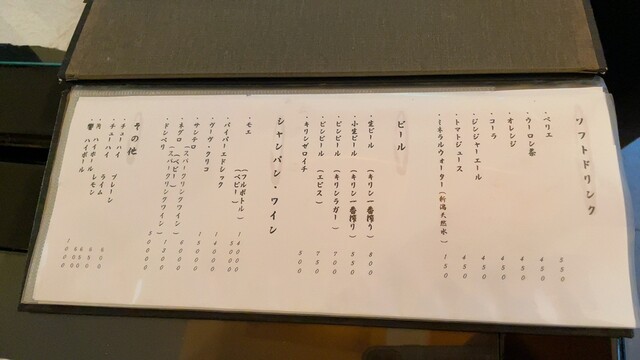 ソフトドリンク
・ペリエ 550
・ウーロン茶 450
・オレンジ 450
・コーラ 450
・ジンジャーエール 450
・トマトジュース 450
・ミネラルウォーター(新潟天然水) 150
ビール
・生ビール (キリン一番搾り) 800
・小生ビール (キリン一番搾り) 550
・ビンビール (キリンラガー) 700
・ビンビール (エビス) 750
・キリンゼロイチ 500
シャンパン・ワイン
・モエ (フルボトル)
・パイパーエドシック (ベビー)
・ヴーヴ・クリコ
・サンテロ
・ネグロ (スパークリングワイン) (ベビー)
・ドンペリ (スパークリングワイン)
その他
・チューハイ プレーン
・チューハイ ライム
・角 ハイボール レモン
・響 ハイボール